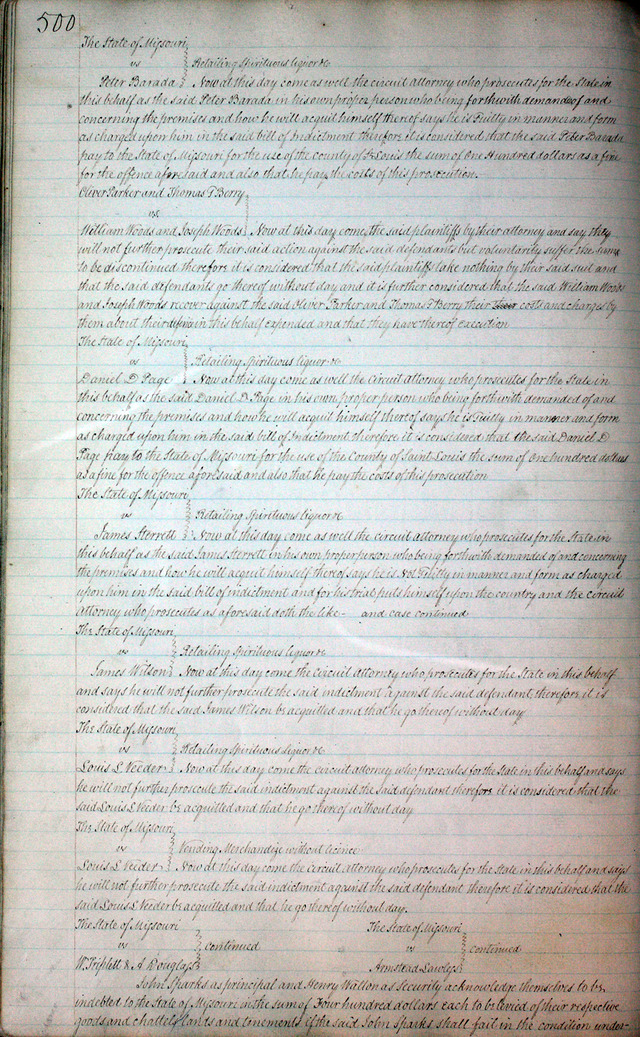 500
The State of Missouri
vs Retailing Spirituous liquor &c
Peter Barada Now at this day come as well the circuit attorney who prosecutes for the State in
this behalf as the said Peter Barada in his own proper person who being forthwith demanded of and
concerning the premises and how he will acquit himself thereof says he is Guilty in manner and form
as charged upon him in the said bill of Indictment therefore it is considered that the said Peter Barada
pay to the State of Missouri for the use of the county of St Louis the sum of one Hundred dollars as a fine
for the offence aforesaid and also that he pay the costs of this prosecution.
Oliver Parker and Thomas T Berry
vs
William Woods and Joseph Woods Now at this day come the said plaintiffs by their attorney and say they
will not further prosecute their said action against the said defendants but voluntarily suffer the same
to be discontinued therefore it is considered that the said plaintiffs take nothing by their said suit and
that the said defendants go thereof without day and it is further considered that the said William Woods
and Joseph Woods recover against the said Oliver Parker and Thomas T Berry their costs and charges by
them about their defence in this behalf expended and that they have thereof execution
The State of Missouri
vs Retailing Spirituous liquor &c
Daniel D Page Now at this day come as well the Circuit attorney who prosecutes for the State in
this behalf as the said Daniel D Page in his own proper person who being forthwith demanded of and
concerning the premises and how he will acquit himself thereof says he is Guilty in manner and form
as charged upon him in the said bill of Indictment therefore it is considered that the said Daniel D
Page pay to the State of Missouri for the use of the County of Saint Louis the sum of one hundred dollars
as a fine for the offence aforesaid and also that he pay the costs of this prosecution
The State of Missouri
vs Retailing Spirituous liquor &c
James Sterrett Now at this day come as well the circuit attorney who prosecutes for the State in
this behalf as the said James Sterrett in his own proper person who being forthwith demanded of and concerning
the premises and how he will acquit himself thereof says he is Not Guilty in manner and form as charged
upon him in the said bill of indictment and for his trial puts himself upon the country and the circuit
attorney who prosecutes as aforesaid doth the like - and case continued
The State of Missouri
vs Retailing Spirituous liquor &c
James Wilson Now at this day come the Circuit Attorney who prosecutes for the State in this behalf
and says he will not further prosecute the said indictment against the said defendant therefore it is
considered that the said James Wilson be acquitted and that he go thereof without day
The State of Missouri
vs Retailing Spirituous liquor &c
Louis L Veeder Now at this day come the circuit attorney who prosecutes for the State in this behalf and says
he will not further prosecute the said indictment against the said defendant therefore it is considered that the
said Louis L Veeder be acquitted and that he go thereof without day
The State of Missouri
vs Vending Merchandize without licence
Louis L Veeder Now at this day come the Circuit attorney who prosecutes for the State in this behalf and says
he will not further prosecute the said indictment against the said defendant therefore it is considered that the
said Louis L Veeder be acquitted and that he go thereof without day.
The State of Missouri The State of Missouri
vs continued vs continued
W. Triplett & A Douglass Armstead Lawless
John Sparks as principal and Henry Walton as Security acknowledge themselves to be
indebted to the State of Missouri in the sum of Four hundred dollars each to be levied of their respective
goods and chattels lands and tenements if the said John Sparks shall fail in the condition under-